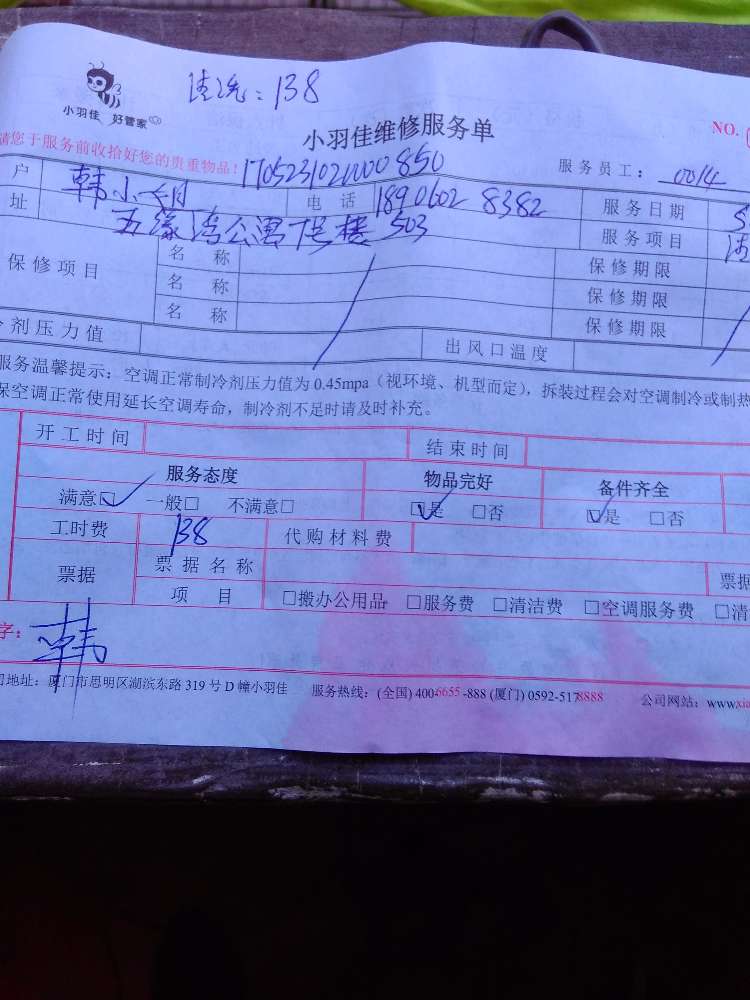 清洗：138
小羽佳 好管家
小羽佳维修服务单
NO.
请您于服务前收拾好您的贵重物品！
170523102000850
服务员工：0014
户 韩小月 电话 18906028382 服务日期
址 五缘湾公寓7号楼503 服务项目
保修项目 名称 保修期限
名称 保修期限
名称 保修期限
剂压力值 出风口温度
服务温馨提示：空调正常制冷剂压力值为0.45mpa（视环境、机型而定），拆装过程会对空调制冷或制热
保空调正常使用延长空调寿命，制冷剂不足时请及时补充。
开工时间 结束时间
服务态度 物品完好 备件齐全
满意☑ 一般□ 不满意□ ☑是 □否 ☑是 □否
工时费 138 代购材料费
票据 票据名称 票据
项目 □搬办公用品 □服务费 □清洁费 □空调服务费 □清
字：韩
司地址：厦门市思明区湖滨东路319号D幢小羽佳 服务热线：(全国)4006655-888 (厦门)0592-5178888 公司网站：www.xia